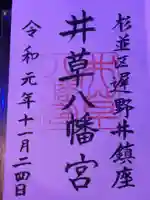 杉並区遅野井鎮座
井草八幡宮
令和元年十一月二四日